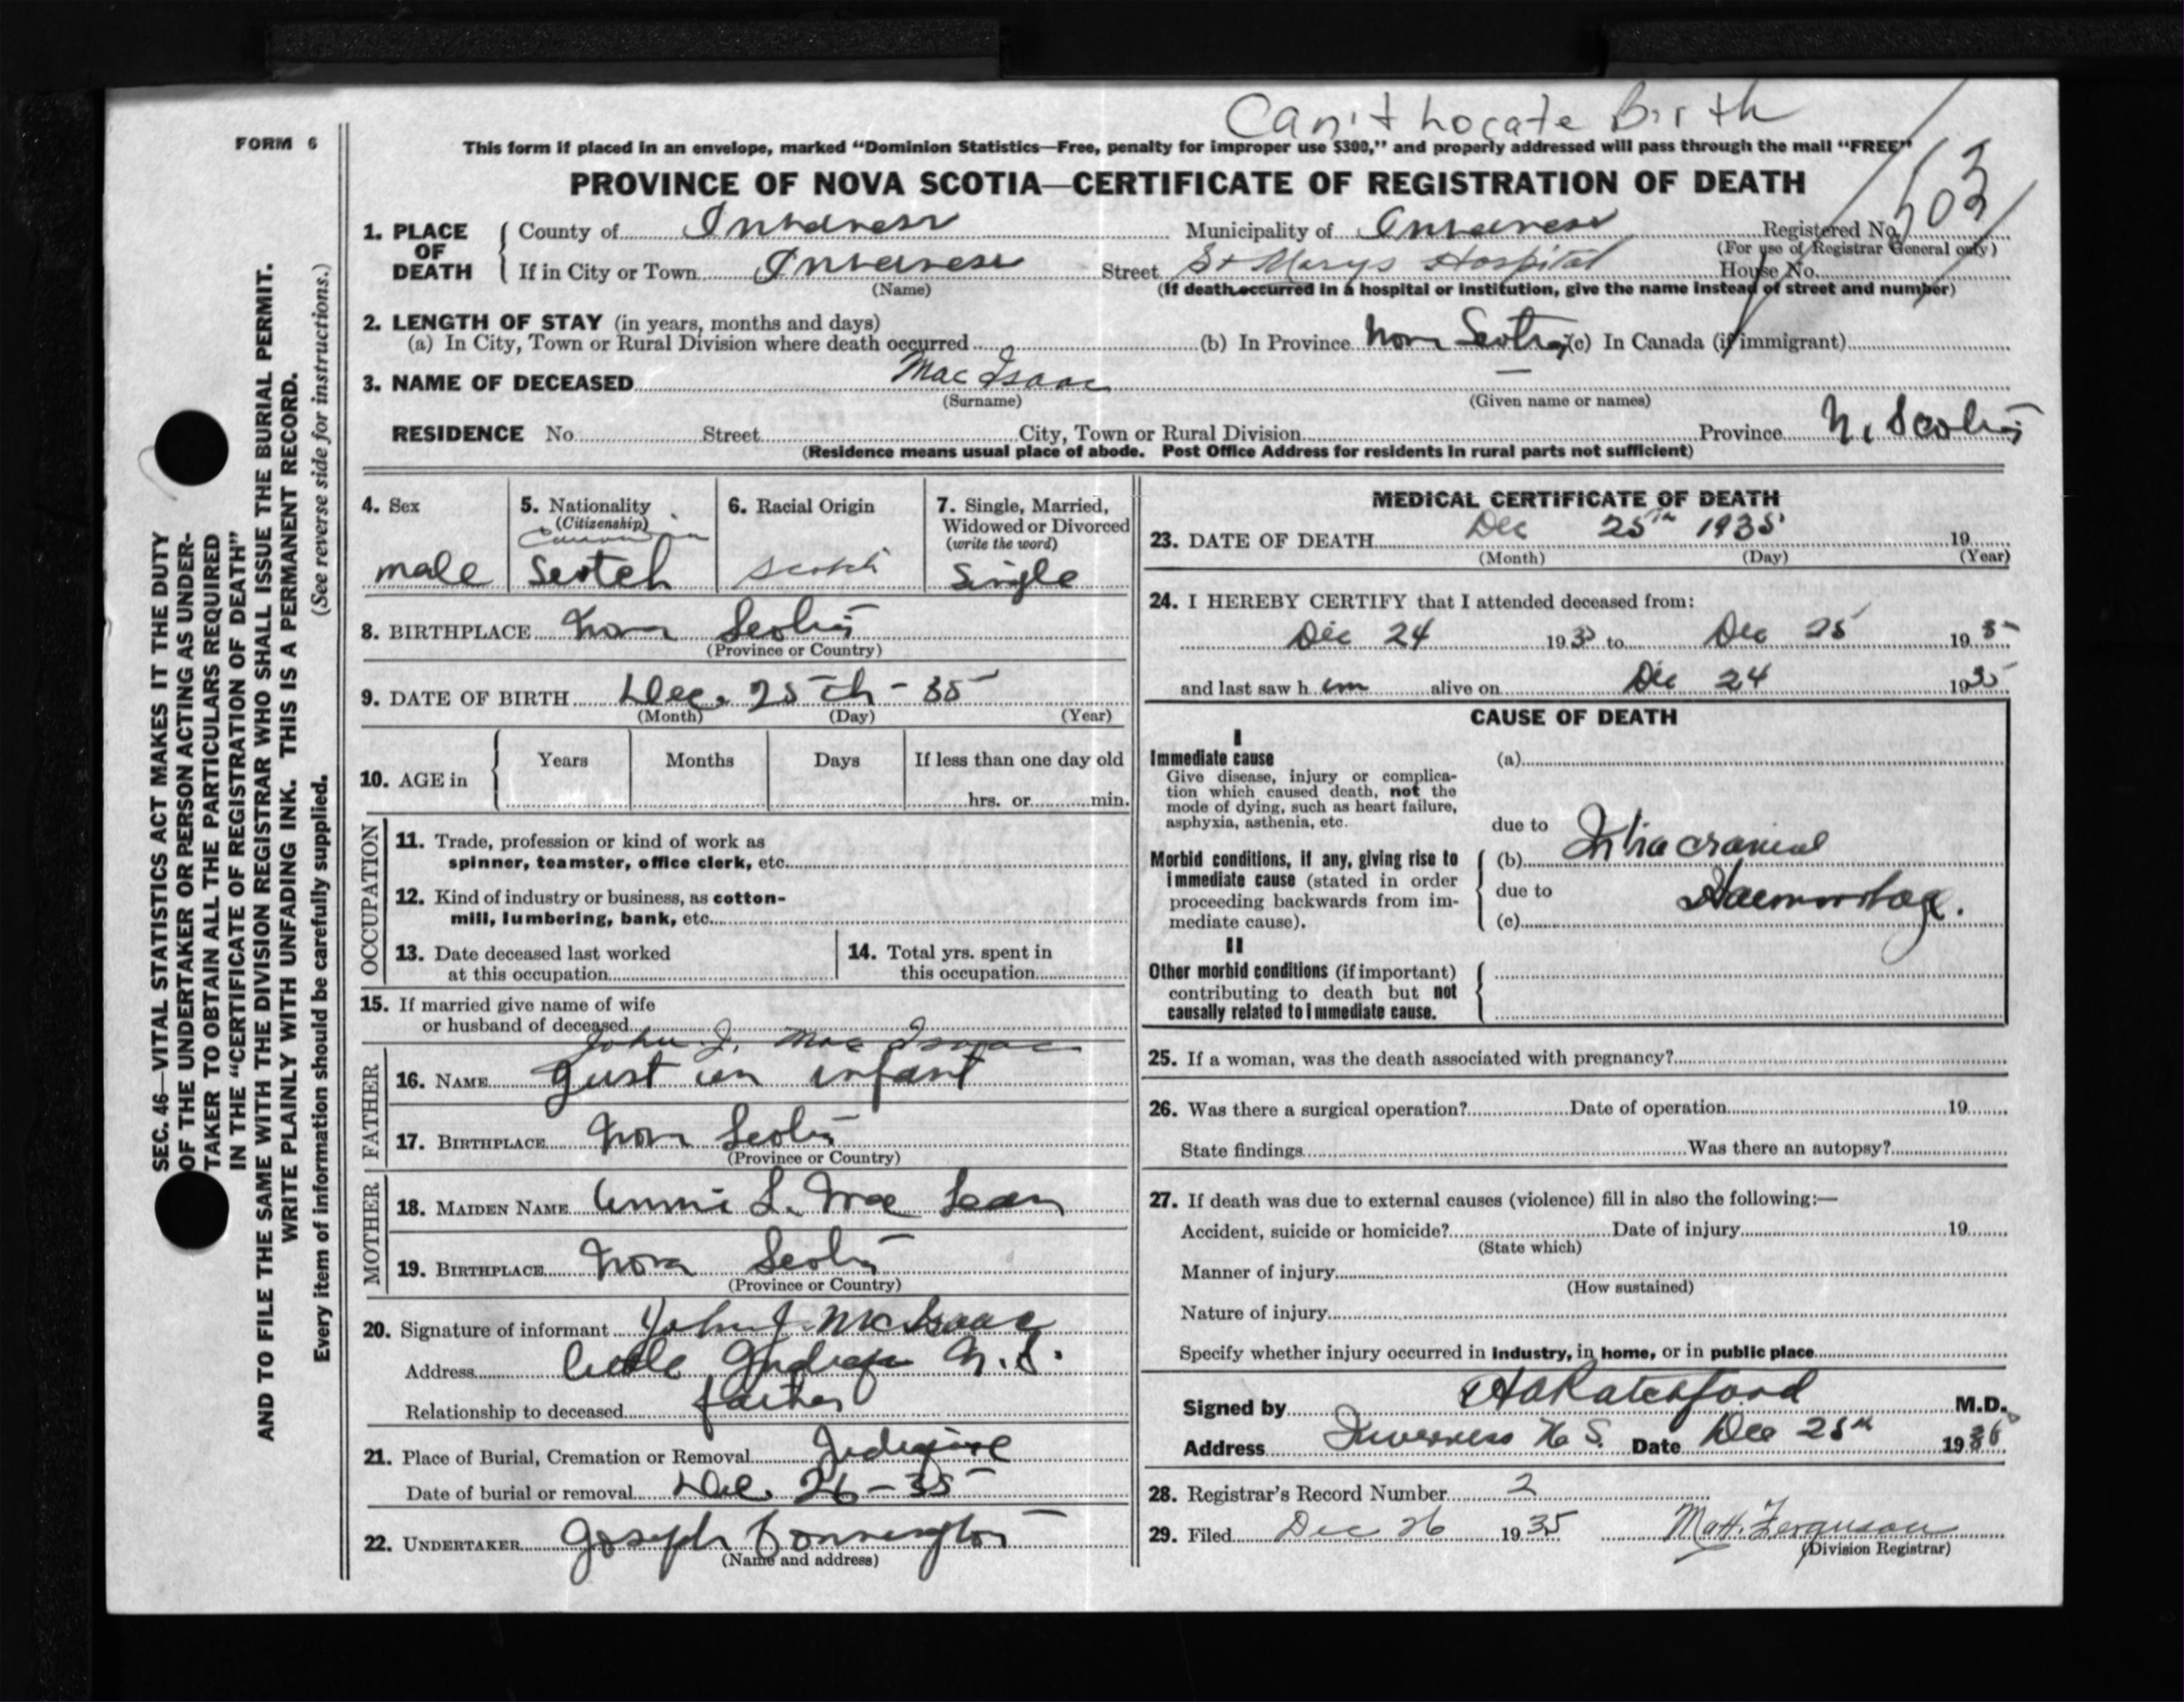 Can't Locate Birth
FORM 6
This form if placed in an envelope, marked "Dominion Statistics—Free, penalty for improper use $300," and properly addressed will pass through the mail "FREE"
PROVINCE OF NOVA SCOTIA—CERTIFICATE OF REGISTRATION OF DEATH
1. PLACE OF DEATH County of Inverness Municipality of Inverness Registered No. 503
(For use of Registrar General only)
If in City or Town Inverness Street St Marys Hospital House No.
(Name) (If death occurred in a hospital or institution, give the name instead of street and number)
2. LENGTH OF STAY (in years, months and days)
(a) In City, Town or Rural Division where death occurred (b) In Province Nova Scotia (c) In Canada (if immigrant)
3. NAME OF DECEASED Mac Isaac —
(Surname) (Given name or names)
RESIDENCE No. Street City, Town or Rural Division Province N. Scotia
(Residence means usual place of abode. Post Office Address for residents in rural parts not sufficient)
SEC. 46—VITAL STATISTICS ACT MAKES IT THE DUTY
OF THE UNDERTAKER OR PERSON ACTING AS UNDER-
TAKER TO OBTAIN ALL THE PARTICULARS REQUIRED
IN THE "CERTIFICATE OF REGISTRATION OF DEATH"
AND TO FILE THE SAME WITH THE DIVISION REGISTRAR WHO SHALL ISSUE THE BURIAL PERMIT.
WRITE PLAINLY WITH UNFADING INK. THIS IS A PERMANENT RECORD.
Every item of information should be carefully supplied. (See reverse side for instructions.)
4. Sex
male
5. Nationality
(Citizenship)
Canadian
Scotch
6. Racial Origin
Scotch
7. Single, Married,
Widowed or Divorced
(write the word)
Single
8. BIRTHPLACE Nova Scotia
(Province or Country)
9. DATE OF BIRTH Dec. 25th - 35
(Month) (Day) (Year)
10. AGE in Years Months Days If less than one day old
hrs. or min.
OCCUPATION
11. Trade, profession or kind of work as
spinner, teamster, office clerk, etc.
12. Kind of industry or business, as cotton-
mill, lumbering, bank, etc.
13. Date deceased last worked
at this occupation
14. Total yrs. spent in
this occupation
15. If married give name of wife
or husband of deceased
FATHER
John J. Mac Isaac
16. NAME Just an infant
17. BIRTHPLACE Nova Scotia
(Province or Country)
MOTHER
18. MAIDEN NAME Annie L. Mac Lean
19. BIRTHPLACE Nova Scotia
(Province or Country)
20. Signature of informant John J. McIsaac
Address Little Judique N.S.
Relationship to deceased father
21. Place of Burial, Cremation or Removal Judique
Date of burial or removal Dec. 26 - 35
22. UNDERTAKER Joseph
(Name and address)
MEDICAL CERTIFICATE OF DEATH
23. DATE OF DEATH Dec 25th 1935 19
(Month) (Day) (Year)
24. I HEREBY CERTIFY that I attended deceased from:
Dec 24 1935 to Dec 25 1935
and last saw him alive on Dec 24 1935
CAUSE OF DEATH
I
Immediate cause
Give disease, injury or complica-
tion which caused death, not the
mode of dying, such as heart failure,
asphyxia, asthenia, etc.
(a)
due to
Morbid conditions, if any, giving rise to
immediate cause (stated in order
proceeding backwards from im-
mediate cause).
(b) Intracranial
due to Haemorrhage.
(c)
II
Other morbid conditions (if important)
contributing to death but not
causally related to immediate cause.
25. If a woman, was the death associated with pregnancy?
26. Was there a surgical operation? Date of operation 19
State findings Was there an autopsy?
27. If death was due to external causes (violence) fill in also the following:—
Accident, suicide or homicide? Date of injury 19
(State which)
Manner of injury
(How sustained)
Nature of injury
Specify whether injury occurred in industry, in home, or in public place
Signed by HA Ratchford M.D.
Address Inverness N.S. Date Dec 25th 19
28. Registrar's Record Number 2
29. Filed Dec 26 1935 Matt. Ferguson
(Division Registrar)